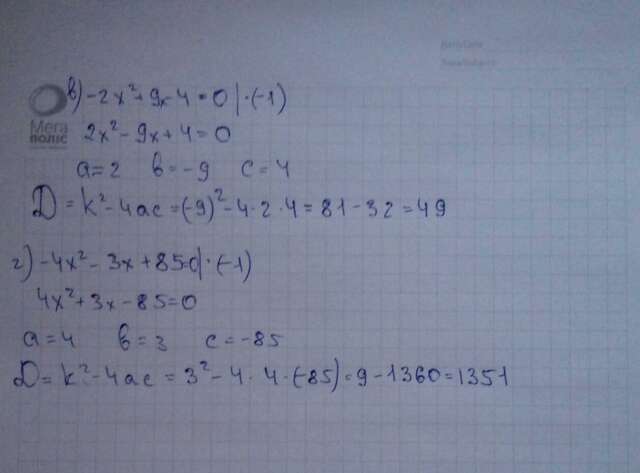 в) -2x² + 9x - 4 = 0 | · (-1)
Мега
поліс
2x² - 9x + 4 = 0
a = 2 в = -9 c = 4
D = k² - 4ac = (-9)² - 4 · 2 · 4 = 81 - 32 = 49
г) -4x² - 3x + 85=0 | · (-1)
4x² + 3x - 85 = 0
a = 4 в = 3 c = -85
D = k² - 4ac = 3² - 4 · 4 · (-85) = 9 - 1360 = 1351